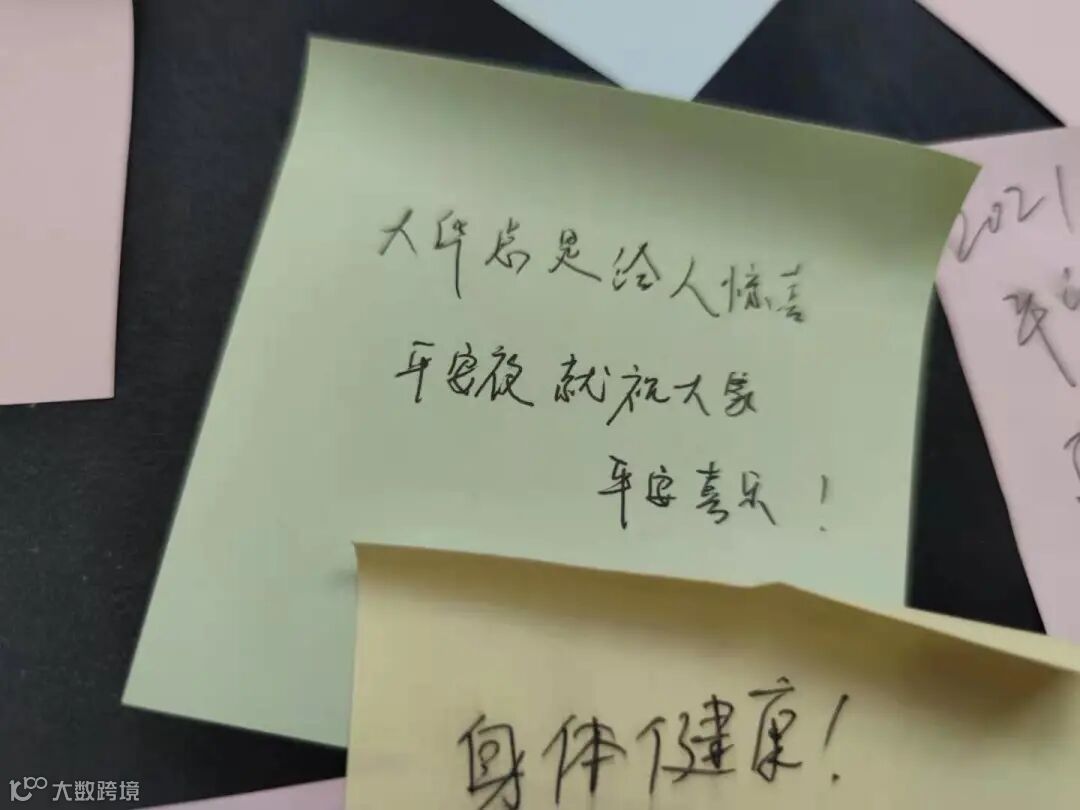 大华总是给人惊喜
平安夜就祝大家
平安喜乐!
身体健康!
2021
大数跨境